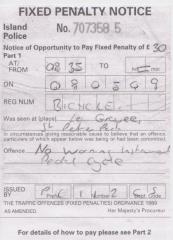 FIXED PENALTY NOTICE
Island
Police
No. 707358 5
Notice of Opportunity to Pay Fixed Penalty of £ 30
Part 1
AT/
FROM
08 35
TO
ON
080509
REG NUM
BICYCLE
Was seen at (place)
In circumstances giving reasonable cause to believe that an offence,
particulars of which appear below was being or had been committed.
Offence No
Pedal Cycle
ISSUED
BY
THE TRAFFIC OFFENCES (FIXED PENALTIES) ORDINANCE 1989
AS AMENDED.
Her Majesty's Procureur
For details of how to pay please see Part 2